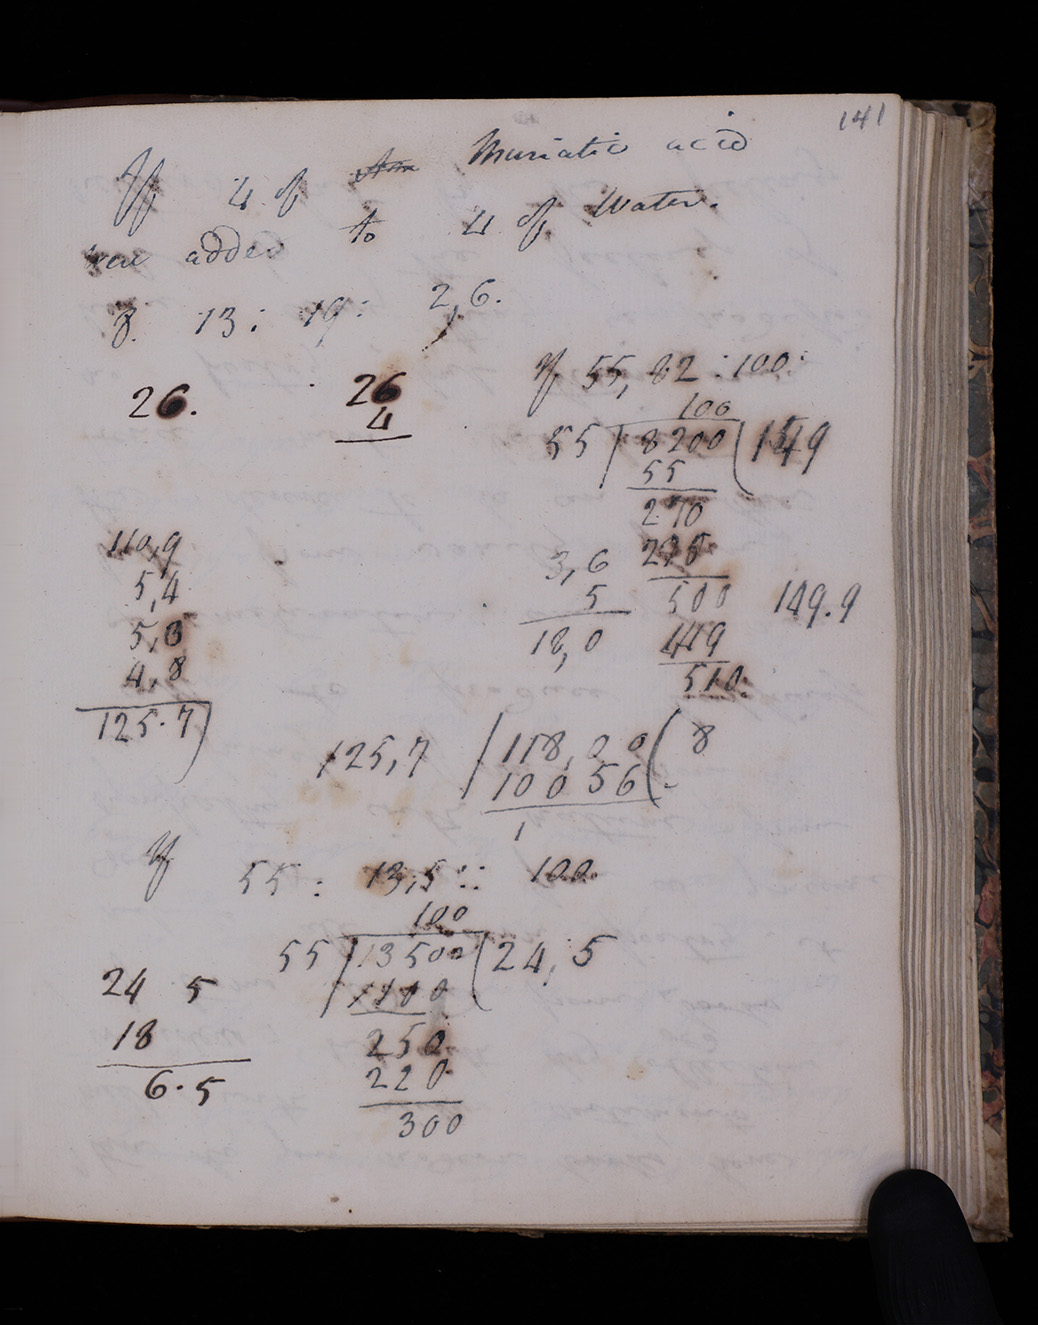 141
If 4 of Am Muriatic acid
were added to 4 of Water.
8. 13 : 19 : 2,6.
If 55,82 : 100:
26. 26
4
100
55 8200 149
55
270
110,9
5,4
5,8
4,8
125.7
3,6
5
18,0
500
449
510
149.9
125,7 118,00 8
10056
1
If 55 : 13,5 :: 100.
100
55 13500 24,5
1100
250
220
300
24 5
18
6.5